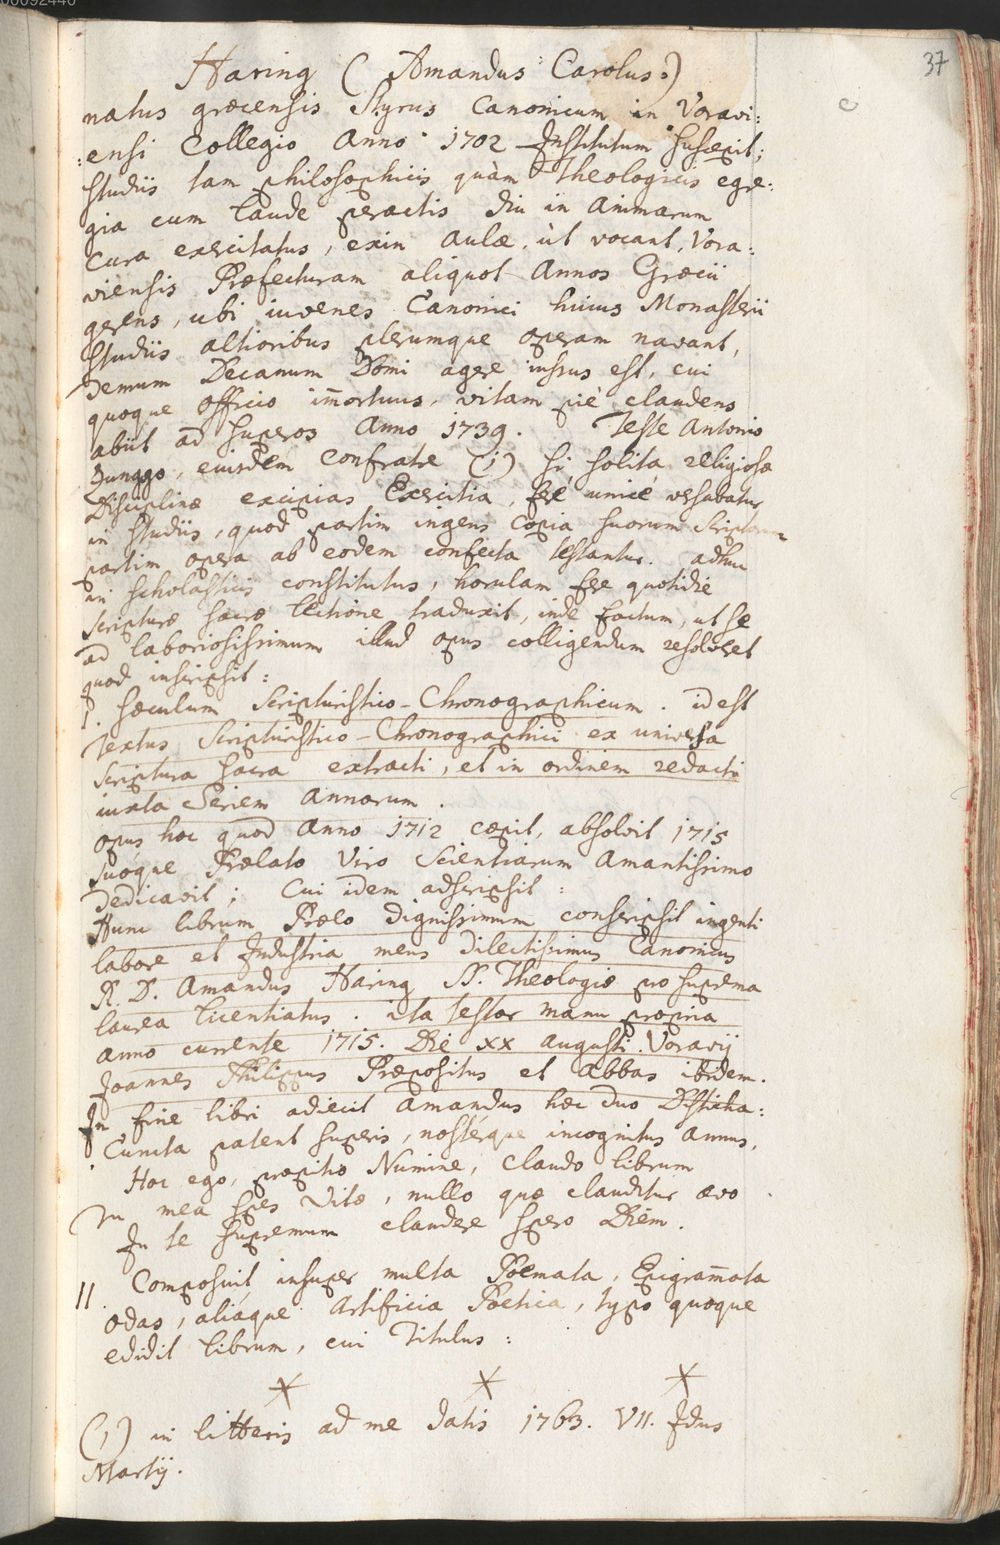 00092440
37
Haring (Amandus Carolus:)
natus græcensis Styrus Canonicum in Voravi:
:ensi Collegio Anno 1702 Institutum suscepit;
studiis tam philosophicis quàm Theologicis egre:
gia cum laude peractis diu in Animarum
cura exercitatus, exin aulæ, ùt vocant, Vora:
viensis Præfecturam aliquot Annos Græcii
gerens, ubi iuvenes Canonici huius Monasterii
studiis altioribus plerumque operam navant,
demum Decanum Domi agere iussus est, cui
quoque officio im̄ortuus, vitam piè claudens
abiit ad superos Anno 1739. Teste Antonio
Junggo, eiusdem confratre (1) si solita religiosæ
Disciplinæ excipias Exercitia, ferè unicè versabatur
in studiis, quod partim ingens copia suorum
partim opera ab eodem confecta testantur. adhuc
in scholasticis constitutus, horulam fere quotidie
scripturæ sacræ lectione traduxit, inde factum, ut se
ad laboriosissimum illud opus colligendum resolveret
quod inscripsit:
I. Sæculum Scripturistico-Chronographicum. id est
Textus Scripturistico-Chronographici ex universa
scriptura sacra extracti, et in ordinem redacti
iuxta Seriem Annorum.
opus hoc quod Anno 1712 cœpit, absolvit 1715
suoque Prælato Viro Scientiarum Amantissimo
dedicavit; Cui idem adscripsit:
Hunc librum Prælo dignissimum conscripsit ingenti
labore et Industria meus dilectissimus Canonicus
R. D. Amandus Haring SS. Theologiæ pro suprema
laurea licentiatus. ita testor manu propria
anno currente 1715. Die XX Augusti. Voravij
Joannes Philippus Præpositus et Abbas ibidem.
In fine libri adiecit Amandus hæc duo Disticha:
Cuncta patent superis, nostérque incognitus annus,
Hoc ego, propitio Numine, claudo librum
Tu mea spes Vitæ, nullo quæ clauditur ævo
In te supremum claudere spero Diem.
II. Composuit insuper multa Poëmata, Epigram̄ata
odas, aliáque Artificia Poetica, typo quoque
edidit librum, cui Titulus:
(1) in litteris ad me datis 1763. VII. Idus
Martij.